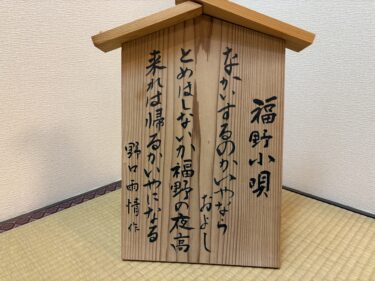 福野小唄
なかいするのかいやなら
およし
とめはしないか福野の夜高
来れは帰るかいやになる
野口雨情作